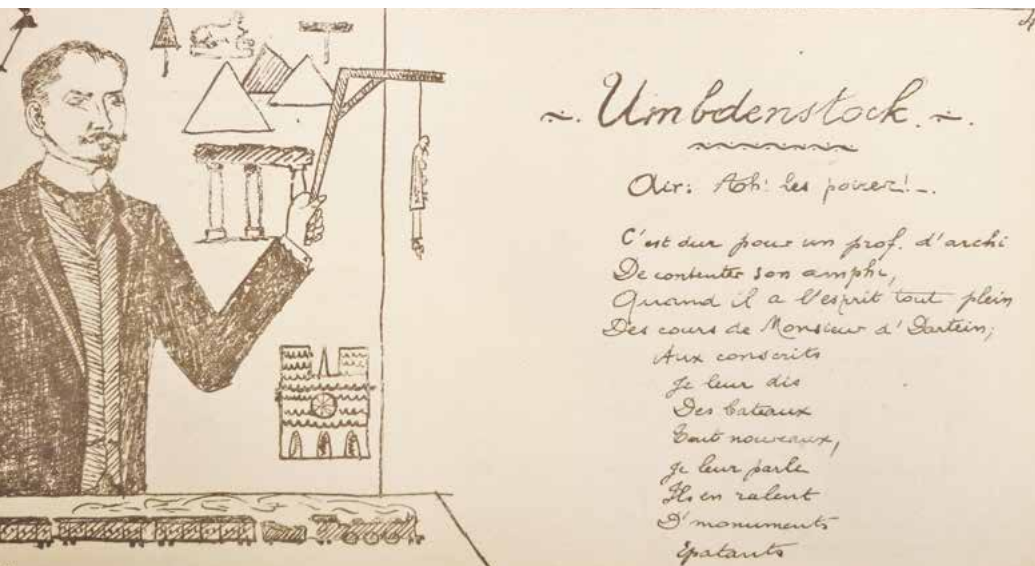 ~. Umbdenstock. ~.
Air: Ah! les poires! _.
C'est dur pour un prof. d'archi
De contenter son amphi,
Quand il a l'esprit tout plein
Des cours de Monsieur d'Dartein;
Aux conscrits
Je leur dis
Des bateaux
Tout nouveaux,
Je leur parle
Ils en ralent
D'monuments
Epatants